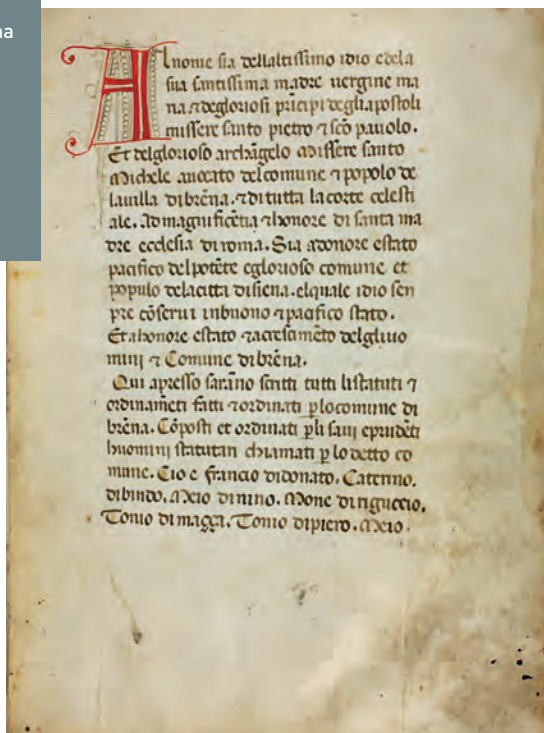 na
Al nome sia dellaltissimo idio ⁊ dela
sua santissima madre uergine ma
ria. ⁊ degloriosi pricipi degliapostoli
missere santo pietro ⁊ sc̄o pauolo.
Et delglorioso archāgelo Missere santo
Michele auocato delcomune ⁊ popolo de
lauilla dibrēna. ⁊ di tutta lacorte celesti
ale. Ad magnificētia ⁊ honore di santa ma
dre ecclesia di roma. Sia adonore estato
pacifico del potēte eglorioso comune et
popolo delacitta disiena. elquale idio sen
pre cōserui inbuono ⁊ pacifico stato.
Et ahonore estato ⁊ acresimēto delgliuo
mini ⁊ Comune dibrēna.
Qui apresso sarāno scritti tutti listatuti ⁊
ordinamēti fatti ⁊ ordinati ꝑ locomune di
brēna. Cōposti et ordinati ꝑ li saui eprudēti
huomini statutari chiamati ꝑ lo detto co
mune. Cio e francio didonato. Caterino.
dibindo. Meio dinino. Mone di riguccio.
Tonio di magga. Tonio dipiero. Meio.